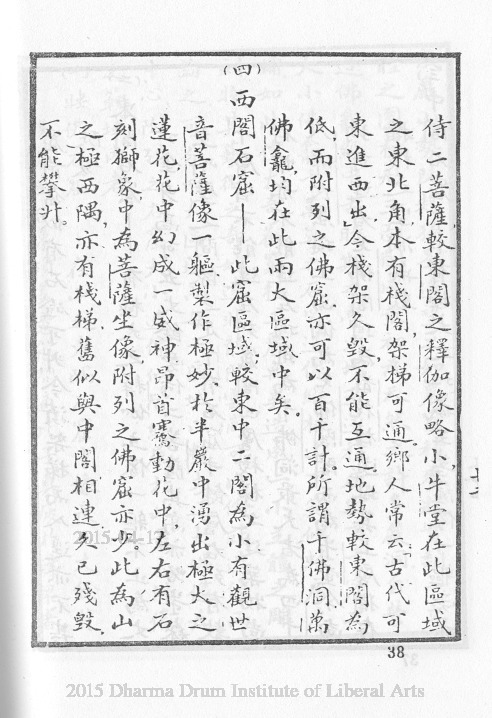 侍二菩薩,較東閣之釋伽像略小,牛堂在此區域
之東北角,本有棧閣,架梯可通。鄉人常云「古代可
東進西出」今棧架久毀,不能互通。地勢較東閣為
低,而附列之佛窟,亦可以百千計。所謂千佛洞,萬
佛龕,均在此兩大區域中矣。
(四)西閣石窟——此窟區域,較東中二閣為小有觀世
音菩薩像一軀,製作極妙,於半巖中湧出極大之
蓮花,花中幻成一威神,昂首騫動花中,左右有石
刻獅象,中為菩薩坐像附列之佛窟亦少。此為山
之極西隅,亦有棧梯,舊似與中閣相連,久已殘毀,
不能攀升。
38
2015-04-17
2015 Dharma Drum Institute of Liberal Arts